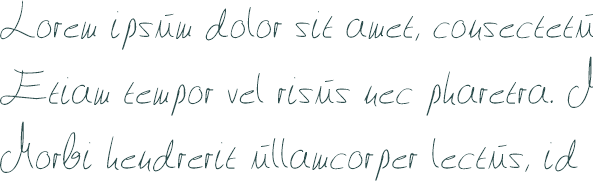 Lorem ipsum dolor sit amet, consectetu
Etiam tempor vel risus nec pharetra. M
Morbi hendrerit ullamcorper lectus, id